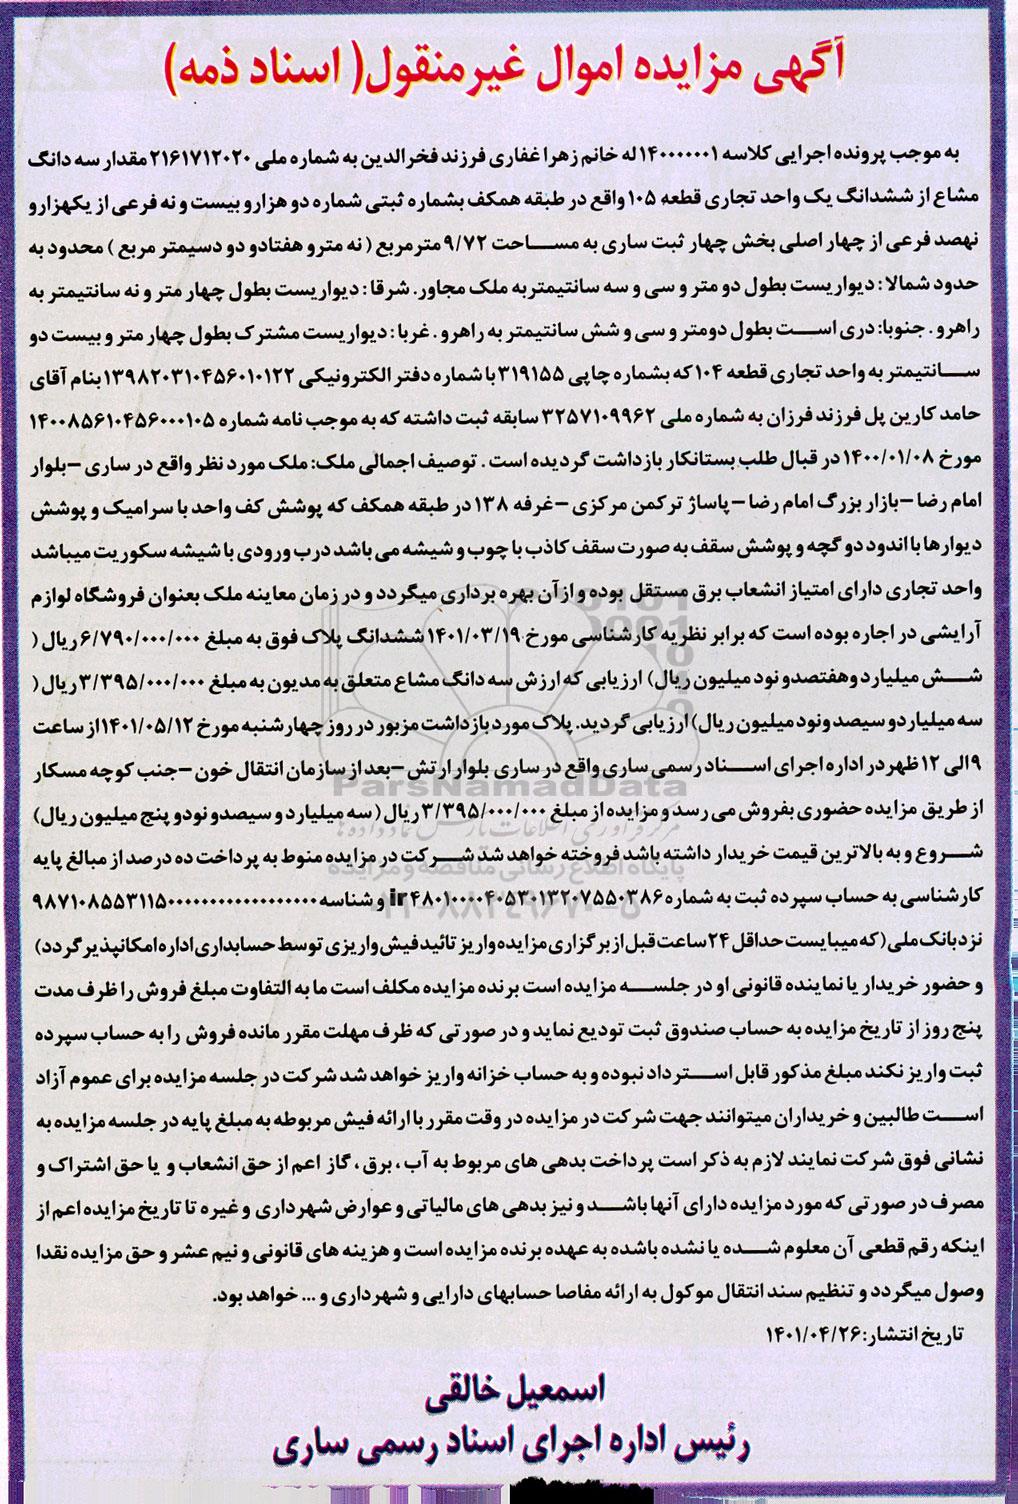 آگهی مزایده اموال غیرمنقول( اسناد ذمه)
به موجب پرونده اجرایی کلاسه ۱۴۰۰۰۰۰۰۱ له خانم زهرا غفاری فرزند فخرالدین به شماره ملی ۲۱۶۱۷۱۲۰۲۰ مقدار سه دانگ
مشاع از ششدانگ یک واحد تجاری قطعه ۱۰۵ واقع در طبقه همکف بشماره ثبتی شماره دو هزارو بیست و نه فرعی از یکهزارو
نهصد فرعی از چهار اصلی بخش چهار ثبت ساری به مساحت ۹/۷۲ مترمربع ( نه مترو هفتادو دو دسیمتر مربع ) محدود به
حدود شمالا : دیواریست بطول دو متر و سی و سه سانتیمتربه ملک مجاور. شرقا : دیواریست بطول چهار متر و نه سانتیمتر به
راهرو . جنوبا: دری است بطول دومتر و سی و شش سانتیمتر به راهرو . غربا : دیواریست مشترک بطول چهار متر و بیست دو
سانتیمتر به واحد تجاری قطعه ۱۰۴ که بشماره چاپی ۳۱۹۱۵۵ با شماره دفتر الکترونیکی ۱۳۹۸۲۰۳۱۰۴۵۶۰۱۰۱۲۲ بنام آقای
حامد کارین پل فرزند فرزان به شماره ملی ۳۲۵۷۱۰۹۹۶۲ سابقه ثبت داشته که به موجب نامه شماره ۱۴۰۰۸۵۶۱۰۴۵۶۰۰۰۱۰۵
مورخ ۱۴۰۰/۰۱/۰۸ در قبال طلب بستانکار بازداشت گردیده است . توصیف اجمالی ملک: ملک مورد نظر واقع در ساری –بلوار
امام رضا –بازار بزرگ امام رضا – پاساژ ترکمن مرکزی –غرفه ۱۳۸ در طبقه همکف که پوشش کف واحد با سرامیک و پوشش
دیوارها با اندود دو گچه و پوشش سقف به صورت سقف کاذب با چوب و شیشه می باشد درب ورودی با شیشه سکوریت میباشد
واحد تجاری دارای امتیاز انشعاب برق مستقل بوده و از آن بهره برداری میگردد و در زمان معاینه ملک بعنوان فروشگاه لوازم
آرایشی در اجاره بوده است که برابر نظریه کارشناسی مورخ ۱۴۰۱/۰۳/۱۹ ششدانگ پلاک فوق به مبلغ ۶/۷۹۰/۰۰۰/۰۰۰ ریال (
شش میلیارد وهفتصدو نود میلیون ریال) ارزیابی که ارزش سه دانگ مشاع متعلق به مدیون به مبلغ ۳/۳۹۵/۰۰۰/۰۰۰ ریال (
سه میلیاردو سیصدونود میلیون ریال) ارزیابی گردید. پلاک مورد بازداشت مزبور در روز چهارشنبه مورخ ۱۴۰۱/۰۵/۱۲ از ساعت
۹ الی ۱۲ ظهردر اداره اجرای اسناد رسمی ساری واقع در ساری بلوار ارتش –بعد از سازمان انتقال خون –جنب کوچه مسکار
از طریق مزایده حضوری بفروش می رسد و مزایده از مبلغ ۳/۳۹۵/۰۰۰/۰۰۰ ریال ( سه میلیارد و سیصدو نودو پنج میلیون ریال)
شروع و به بالاترین قیمت خریدار داشته باشد فروخته خواهد شد شرکت در مزایده منوط به پرداخت ده درصد از مبالغ پایه
کارشناسی به حساب سپرده ثبت به شماره ir۴۸۰۱۰۰۰۰۴۰۵۳۰۱۳۲۰۷۵۵۰۳۸۶ و شناسه
نزد بانک ملی ( که میبایست حداقل ۲۴ ساعت قبل از برگزاری مزایده واریز تائید فیش واریزی توسط حسابداری اداره امکانپذیر گردد)
و حضور خریدار یا نماینده قانونی او در جلسه مزایده است برنده مزایده مکلف است ما به التفاوت مبلغ فروش را ظرف مدت
پنج روز از تاریخ مزایده به حساب صندوق ثبت تودیع نماید و در صورتی که ظرف مهلت مقرر مانده فروش را به حساب سپرده
ثبت واریز نکند مبلغ مذکور قابل استرداد نبوده و به حساب خزانه واریز خواهد شد شرکت در جلسه مزایده برای عموم آزاد
است طالبین و خریداران میتوانند جهت شرکت در مزایده در وقت مقرر با ارائه فیش مربوطه به مبلغ پایه در جلسه مزایده به
نشانی فوق شرکت نمایند لازم به ذکر است پرداخت بدهی های مربوط به آب ، برق ، گاز اعم از حق انشعاب و یا حق اشتراک و
مصرف در صورتی که مورد مزایده دارای آنها باشد و نیز بدهی های مالیاتی و عوارض شهرداری و غیره تا تاریخ مزایده اعم از
اینکه رقم قطعی آن معلوم شده یا نشده باشده به عهده برنده مزایده است و هزینه های قانونی و نیم عشر و حق مزایده نقدا
وصول میگردد و تنظیم سند انتقال موکول به ارائه مفاصا حسابهای دارایی و شهرداری و ... خواهد بود.
تاریخ انتشار: ۱۴۰۱/۰۴/۲۶
اسمعیل خالقی
رئیس اداره اجرای اسناد رسمی ساری
ParsNamadData
پایگاه اطلاع رسانی مناقصه و مزایده